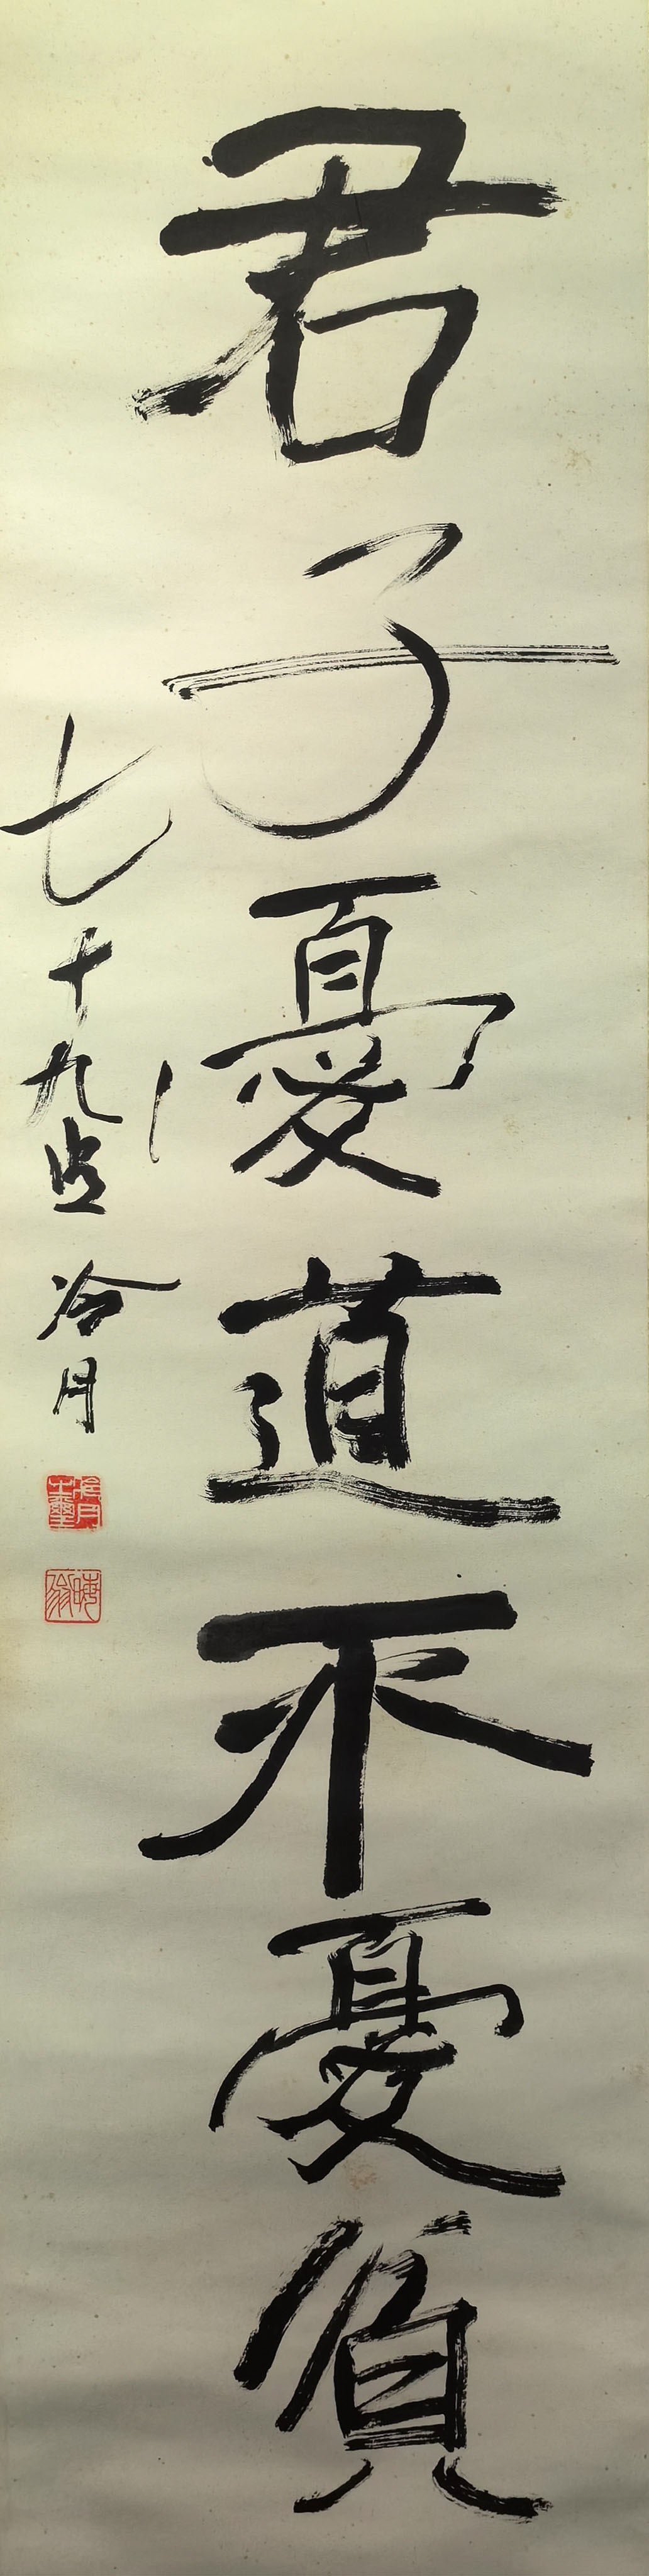 君子憂道不憂貧
七十九叟 冷月